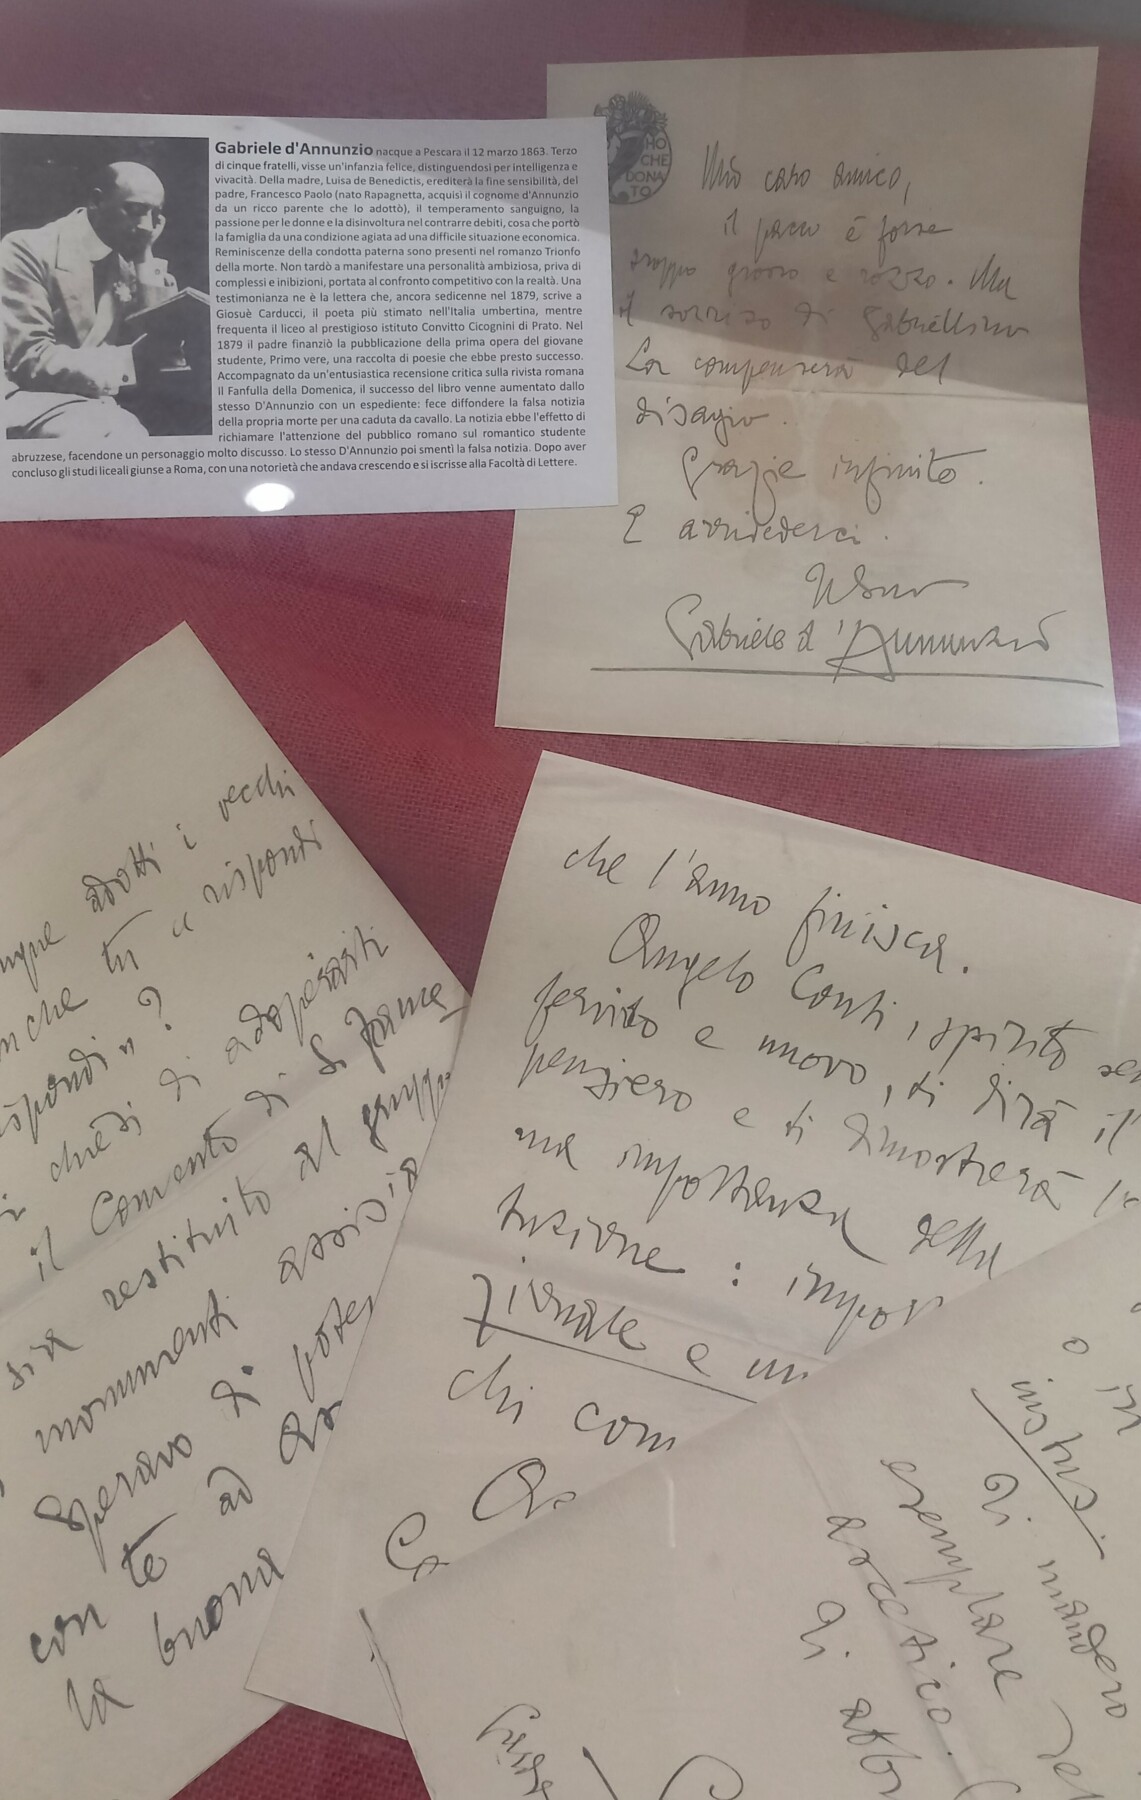 Gabriele d'Annunzio nacque a Pescara il 12 marzo 1863. Terzo
di cinque fratelli, visse un'infanzia felice, distinguendosi per intelligenza e
vivacità. Della madre, Luisa de Benedictis, erediterà la fine sensibilità, del
padre, Francesco Paolo (nato Rapagnetta, acquisì il cognome d'Annunzio
da un ricco parente che lo adottò), il temperamento sanguigno, la
passione per le donne e la disinvoltura nel contrarre debiti, cosa che portò
la famiglia da una condizione agiata ad una difficile situazione economica.
Reminiscenze della condotta paterna sono presenti nel romanzo Trionfo
della morte. Non tardò a manifestare una personalità ambiziosa, priva di
complessi e inibizioni, portata al confronto competitivo con la realtà. Una
testimonianza ne è la lettera che, ancora sedicenne nel 1879, scrive a
Giosuè Carducci, il poeta più stimato nell'Italia umbertina, mentre
frequenta il liceo al prestigioso istituto Convitto Cicognini di Prato. Nel
1879 il padre finanziò la pubblicazione della prima opera del giovane
studente, Primo vere, una raccolta di poesie che ebbe presto successo.
Accompagnato da un'entusiastica recensione critica sulla rivista romana
Il Fanfulla della Domenica, il successo del libro venne aumentato dallo
stesso D'Annunzio con un espediente: fece diffondere la falsa notizia
della propria morte per una caduta da cavallo. La notizia ebbe l'effetto di
richiamare l'attenzione del pubblico romano sul romantico studente
abruzzese, facendone un personaggio molto discusso. Lo stesso D'Annunzio poi smentì la falsa notizia. Dopo aver
concluso gli studi liceali giunse a Roma, con una notorietà che andava crescendo e si iscrisse alla Facoltà di Lettere.
HO
CHE
DONA
TO
Mio caro amico,
il pacco è forse
troppo grosso e rozzo. Ma
il sorriso di Gabriellino
La compenserà del
disagio.
Grazie infinite.
E arrivederci.
Gabriele d'Annunzio
adotti i vecchi
tu "rispondi
rispondi"?
chiedi di adoperarti
il Comento di
sia restituito al grupp
monumenti
Speravo di poter
con te ad
la buona
che l'anno finisca.
Angelo Conti, spirito
e nuovo, ti dirà il
pensiero e ti dimostrerà
una importanza della
: impor
e un
chi com
o in
Ti manderò
esemplare del
ascetico.
Ti abb